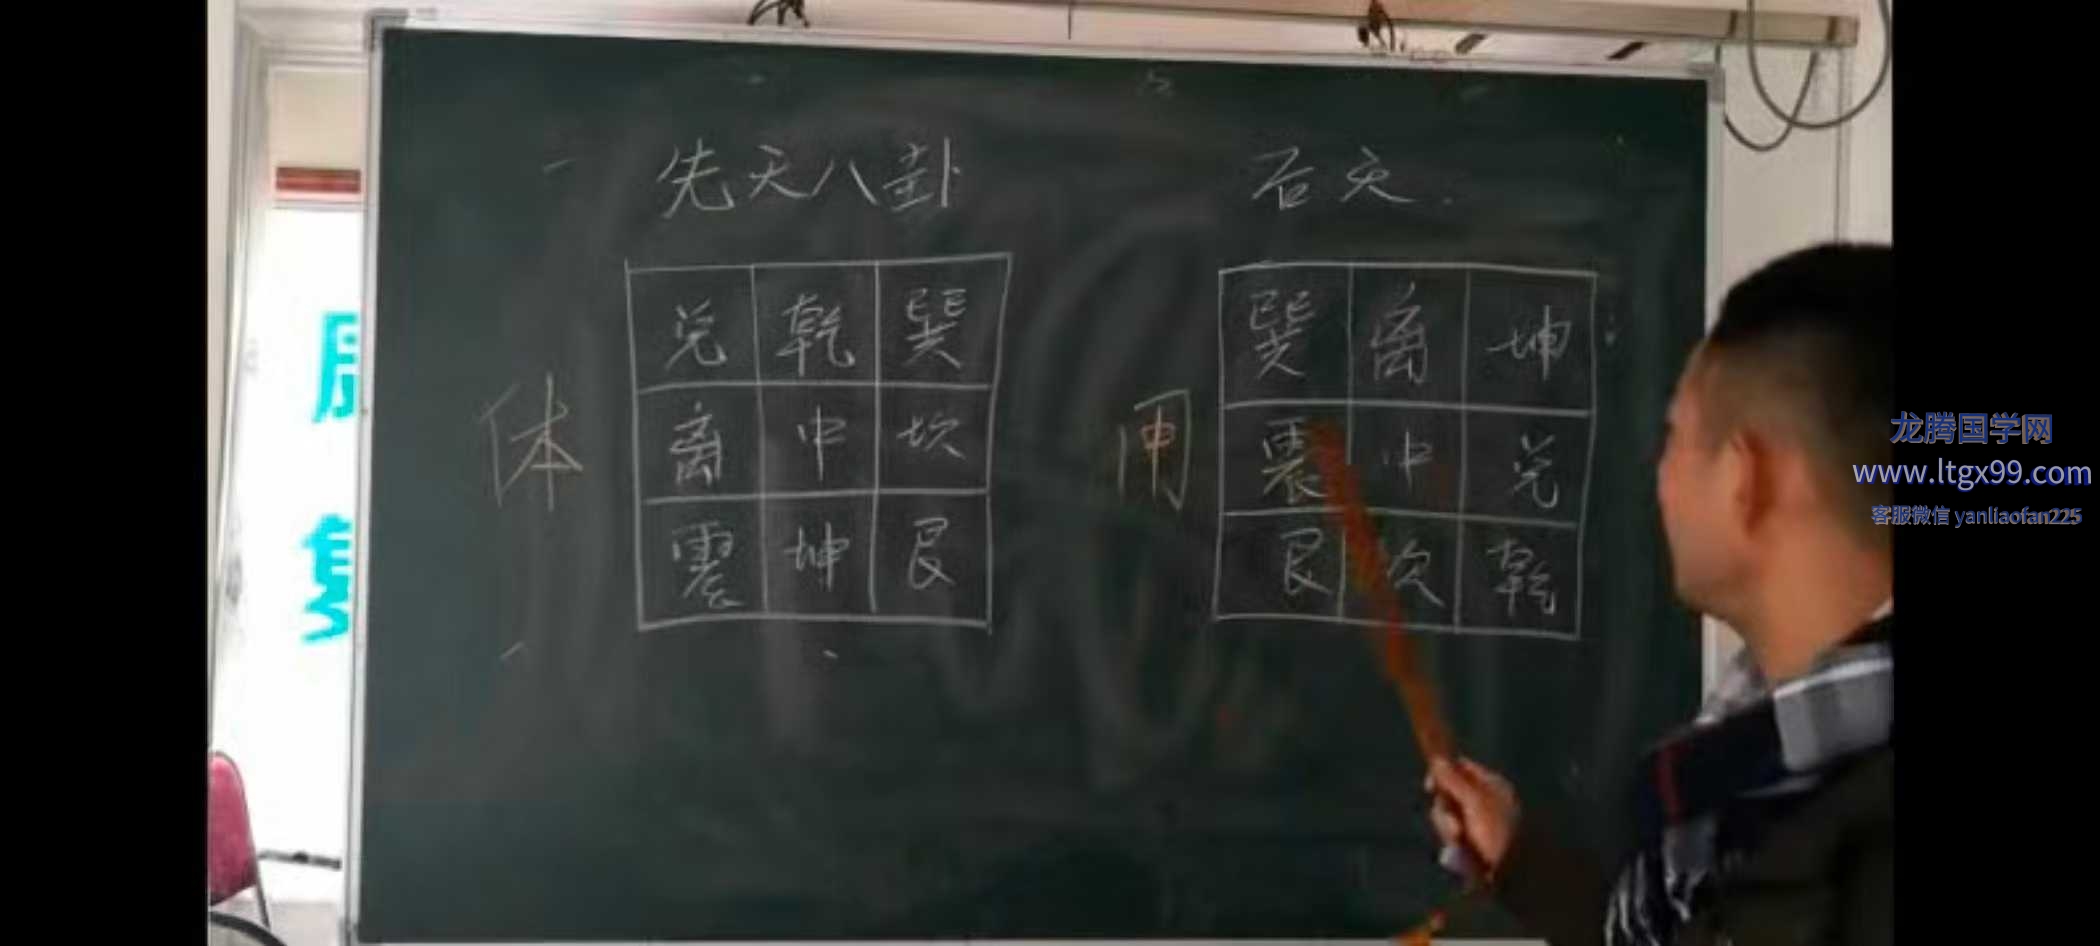 先天八卦
后天
兑 乾 巽
离 中 坎
震 坤 艮
体
巽 离 坤
震 中 兑
艮 坎 乾
用
龙腾国学网
www.ltgx99.com
客服微信 yanliaofan225